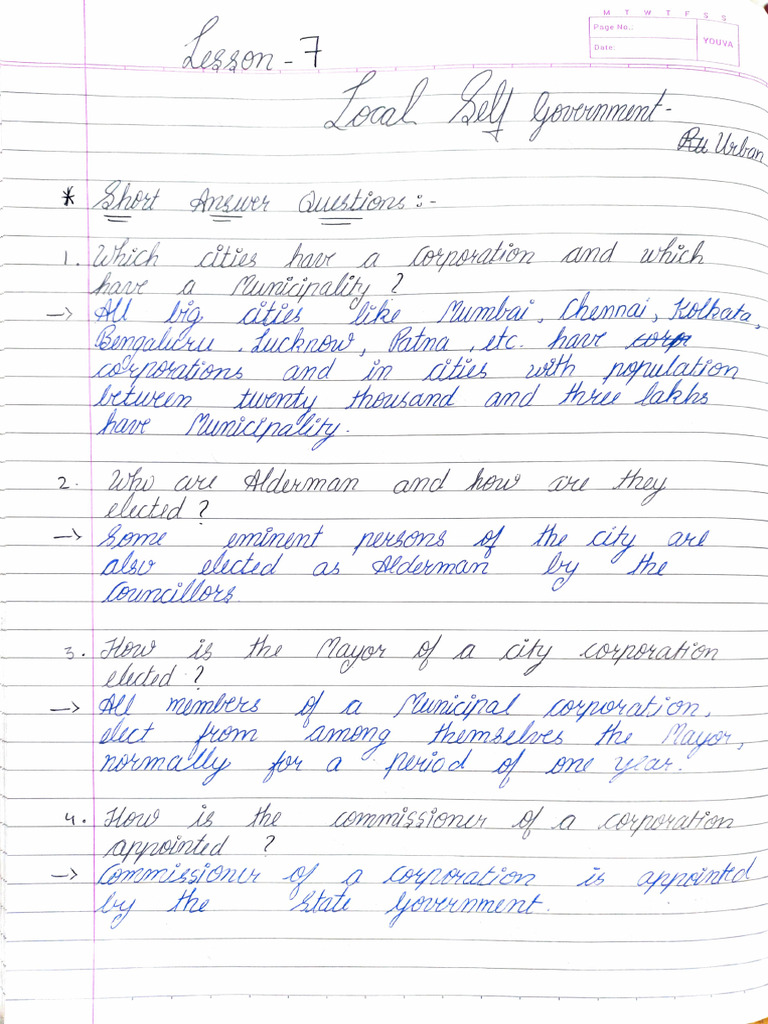 M T W T F S S
Page No.:
Date:
YOUVA
Lesson - 7
Local Self Government -
Urban
* Short Answer Questions :-
1. Which cities have a corporation and which
have a Municipality ?
→ All big cities like Mumbai, Chennai, Kolkata,
Bengaluru, Lucknow, Patna, etc. have corp
corporations and in cities with population
between twenty thousand and three lakhs
have Municipality.
2. Who are Alderman and how are they
elected ?
→ Some eminent persons of the city are
also elected as Alderman by the
Councillors
3. How is the Mayor of a city corporation
elected ?
→ All members of a Municipal corporation,
elect from among themselves the Mayor,
normally for a period of one year.
4. How is the commissioner of a corporation
appointed ?
→ Commissioner of a corporation is appointed
by the State Government.